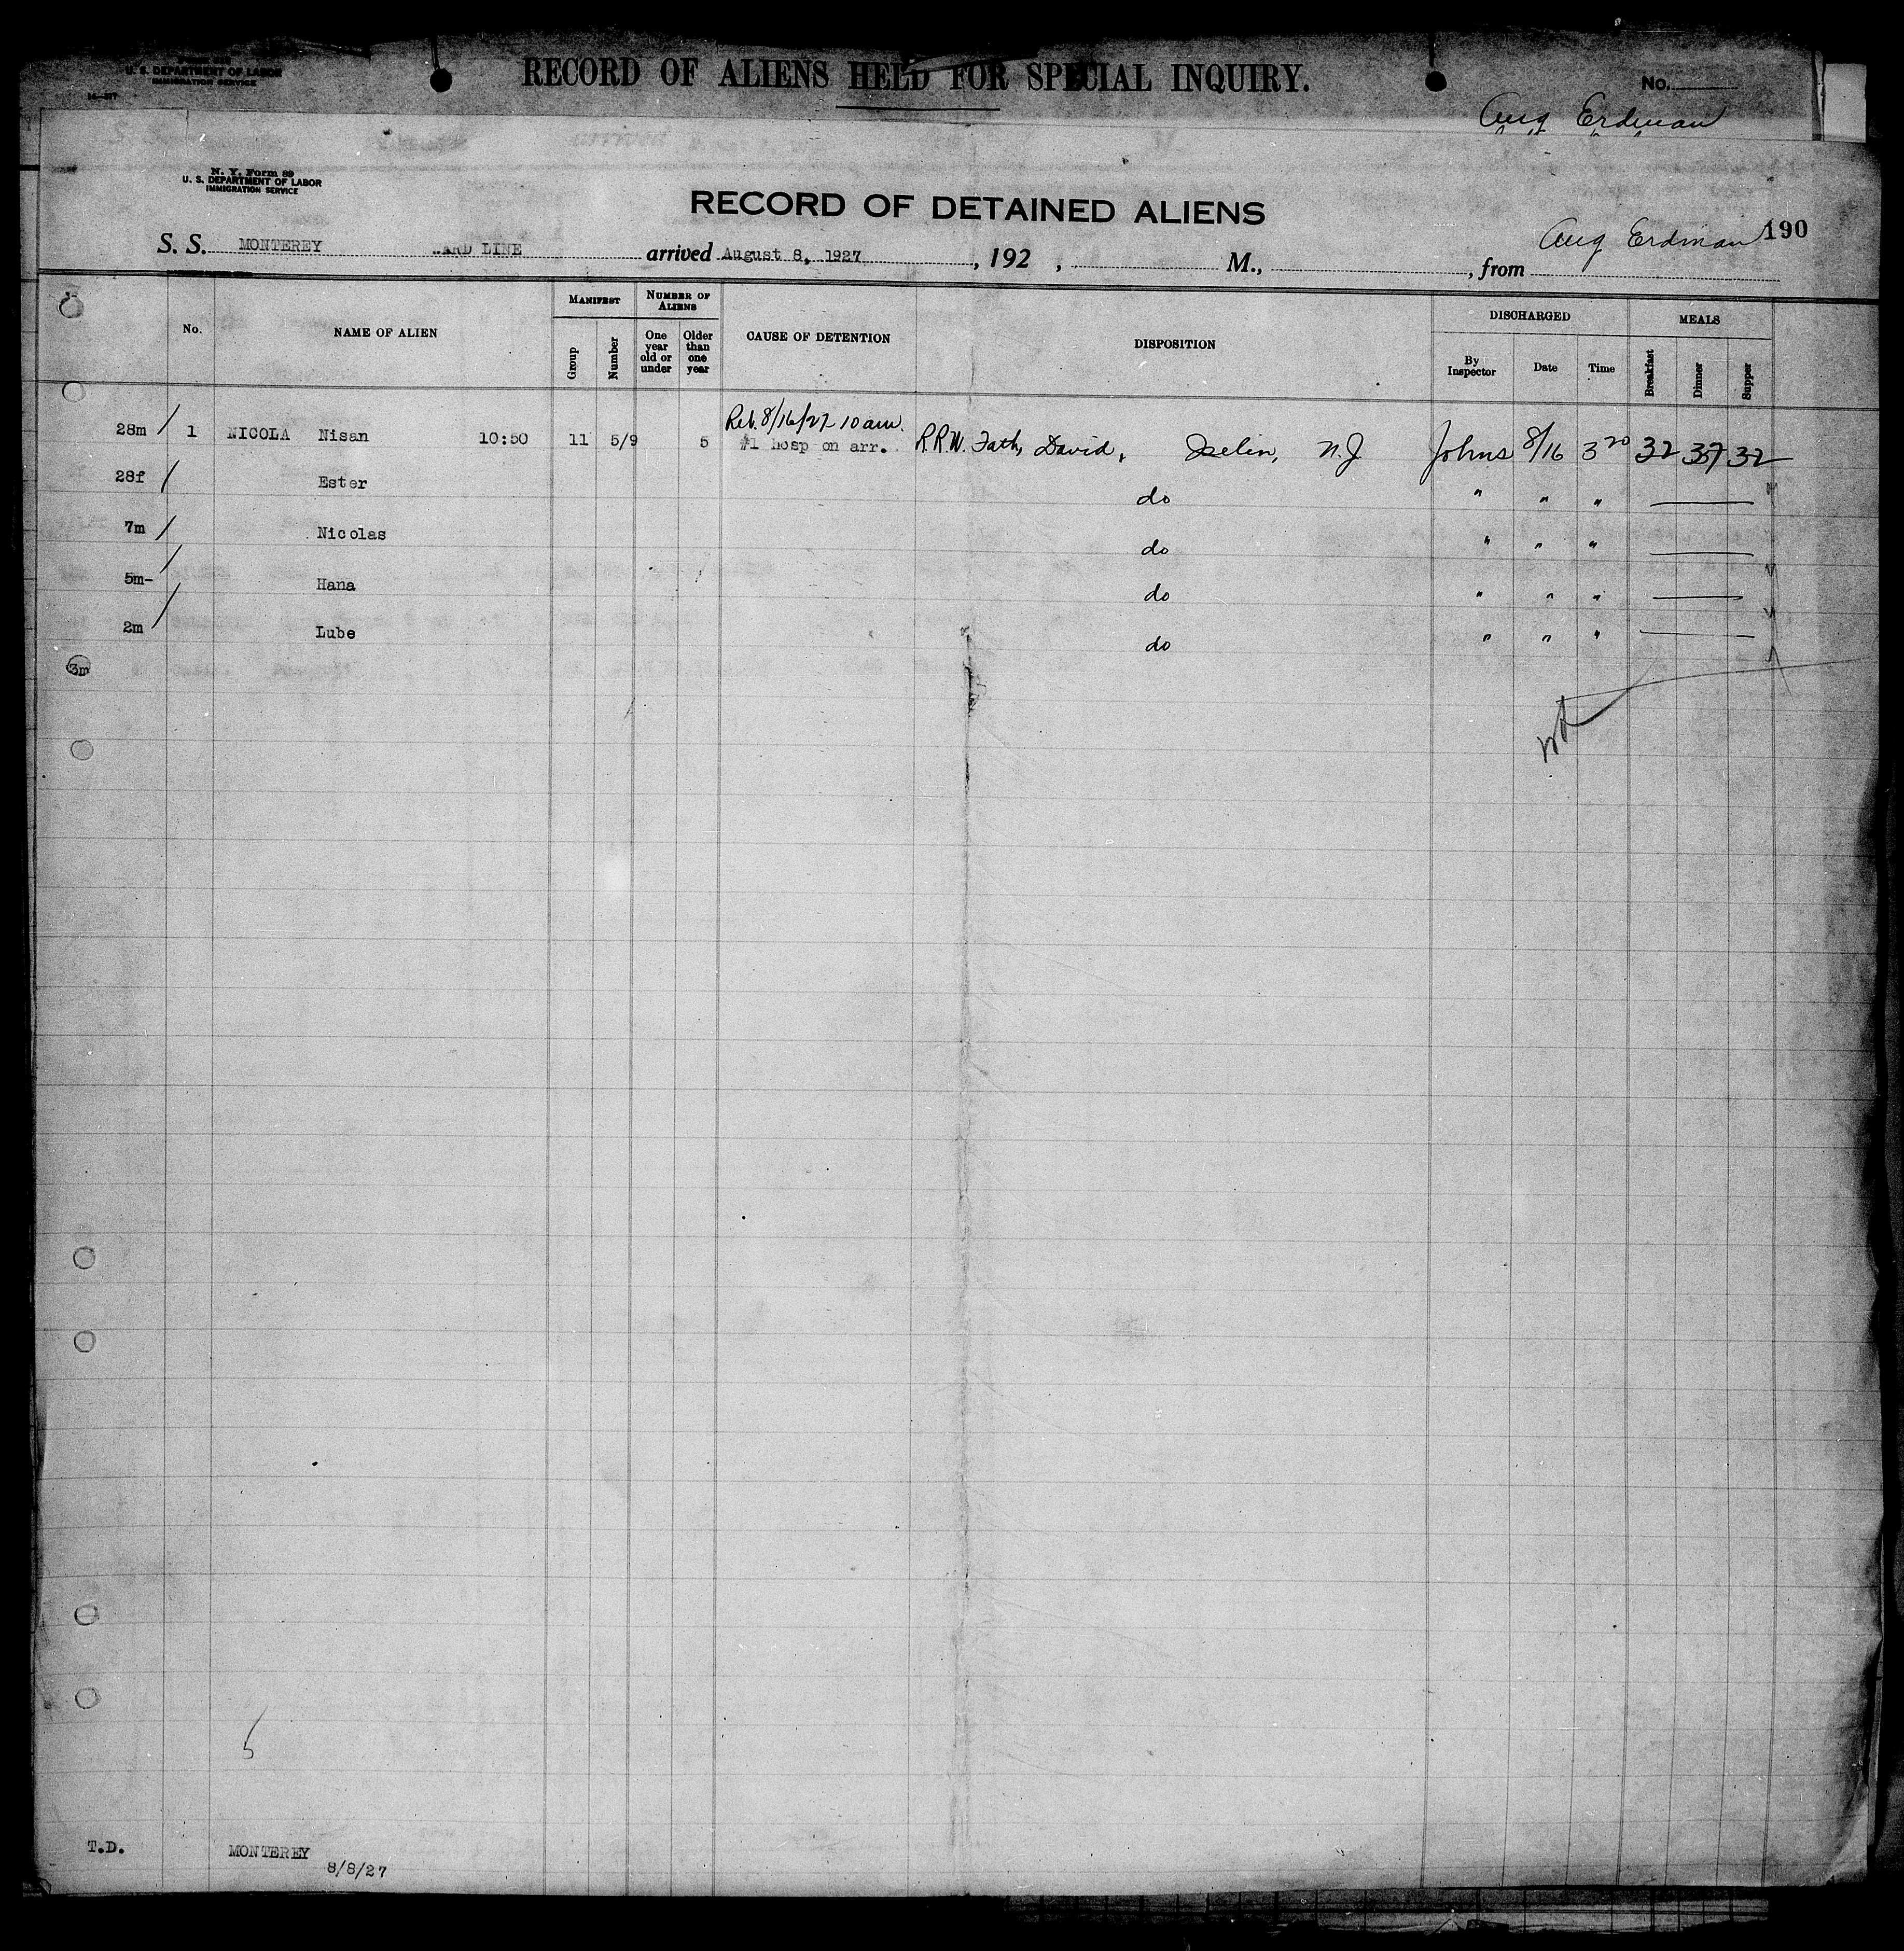 U. S. DEPARTMENT OF LABOR
IMMIGRATION SERVICE
RECORD OF ALIENS HELD FOR SPECIAL INQUIRY.
No.
Aug Erdman
N. Y. Form 89
U. S. DEPARTMENT OF LABOR
IMMIGRATION SERVICE
RECORD OF DETAINED ALIENS
Aug Erdman 190
S. S. MONTEREY ARD LINE arrived August 8, 1927, 192 , M., , from
No. NAME OF ALIEN MANIFEST Group Number NUMBER OF ALIENS One year old or under Older than one year CAUSE OF DETENTION DISPOSITION DISCHARGED By Inspector Date Time MEALS Breakfast Dinner Supper
Reb. 8/16/27 10 am.
28m / 1 NICOLA Nisan 10:50 11 5/9 5 #1 hosp on arr. R.R.W. Fath, David, Iselin, N.J Johns 8/16 3 20 32 37 32
28f / Ester do " " "
7m / Nicolas do " " "
5m- / Hana do " " "
2m / Lube do " " "
3m
5
T.D. MONTEREY
8/8/27